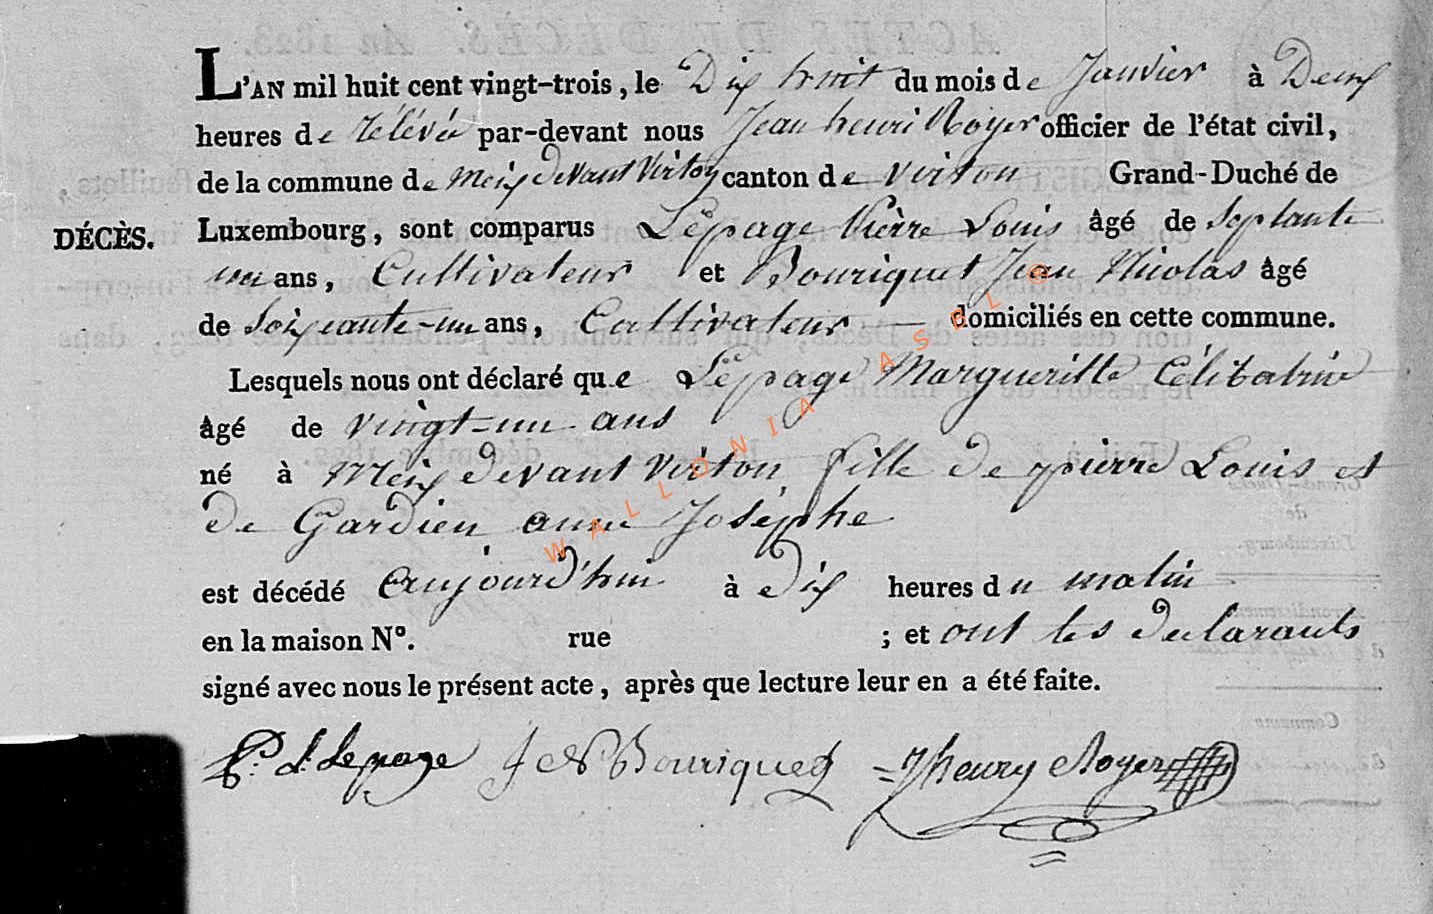 L'AN mil huit cent vingt-trois, le Dix huit du mois de Janvier à Deux
heures de rélévée par-devant nous Jean henri Royer officier de l'état civil,
de la commune de Meix devant Virton canton de virton Grand-Duché de
DÉCÈS. Luxembourg, sont comparus Lépage Pièrre Louis âgé de Septante
un ans, Cultivateur et Bouriquet Jean Nicolas âgé
de Soixante-un ans, Cultivateur — domiciliés en cette commune.
Lesquels nous ont déclaré que Lépage Margueritte Célibataire
âgé de vingt-un ans
né à Meix devant Virton fille de pierre Louis et
de Gardien anne Joséphe
est décédé aujourd'hui à dix heures du matin
en la maison N°. rue ; et ont les declarants
signé avec nous le présent acte, après que lecture leur en a été faite.
P. L. Lepage J N Bouriquet J henry Royer
WALLONIA ASBL ©